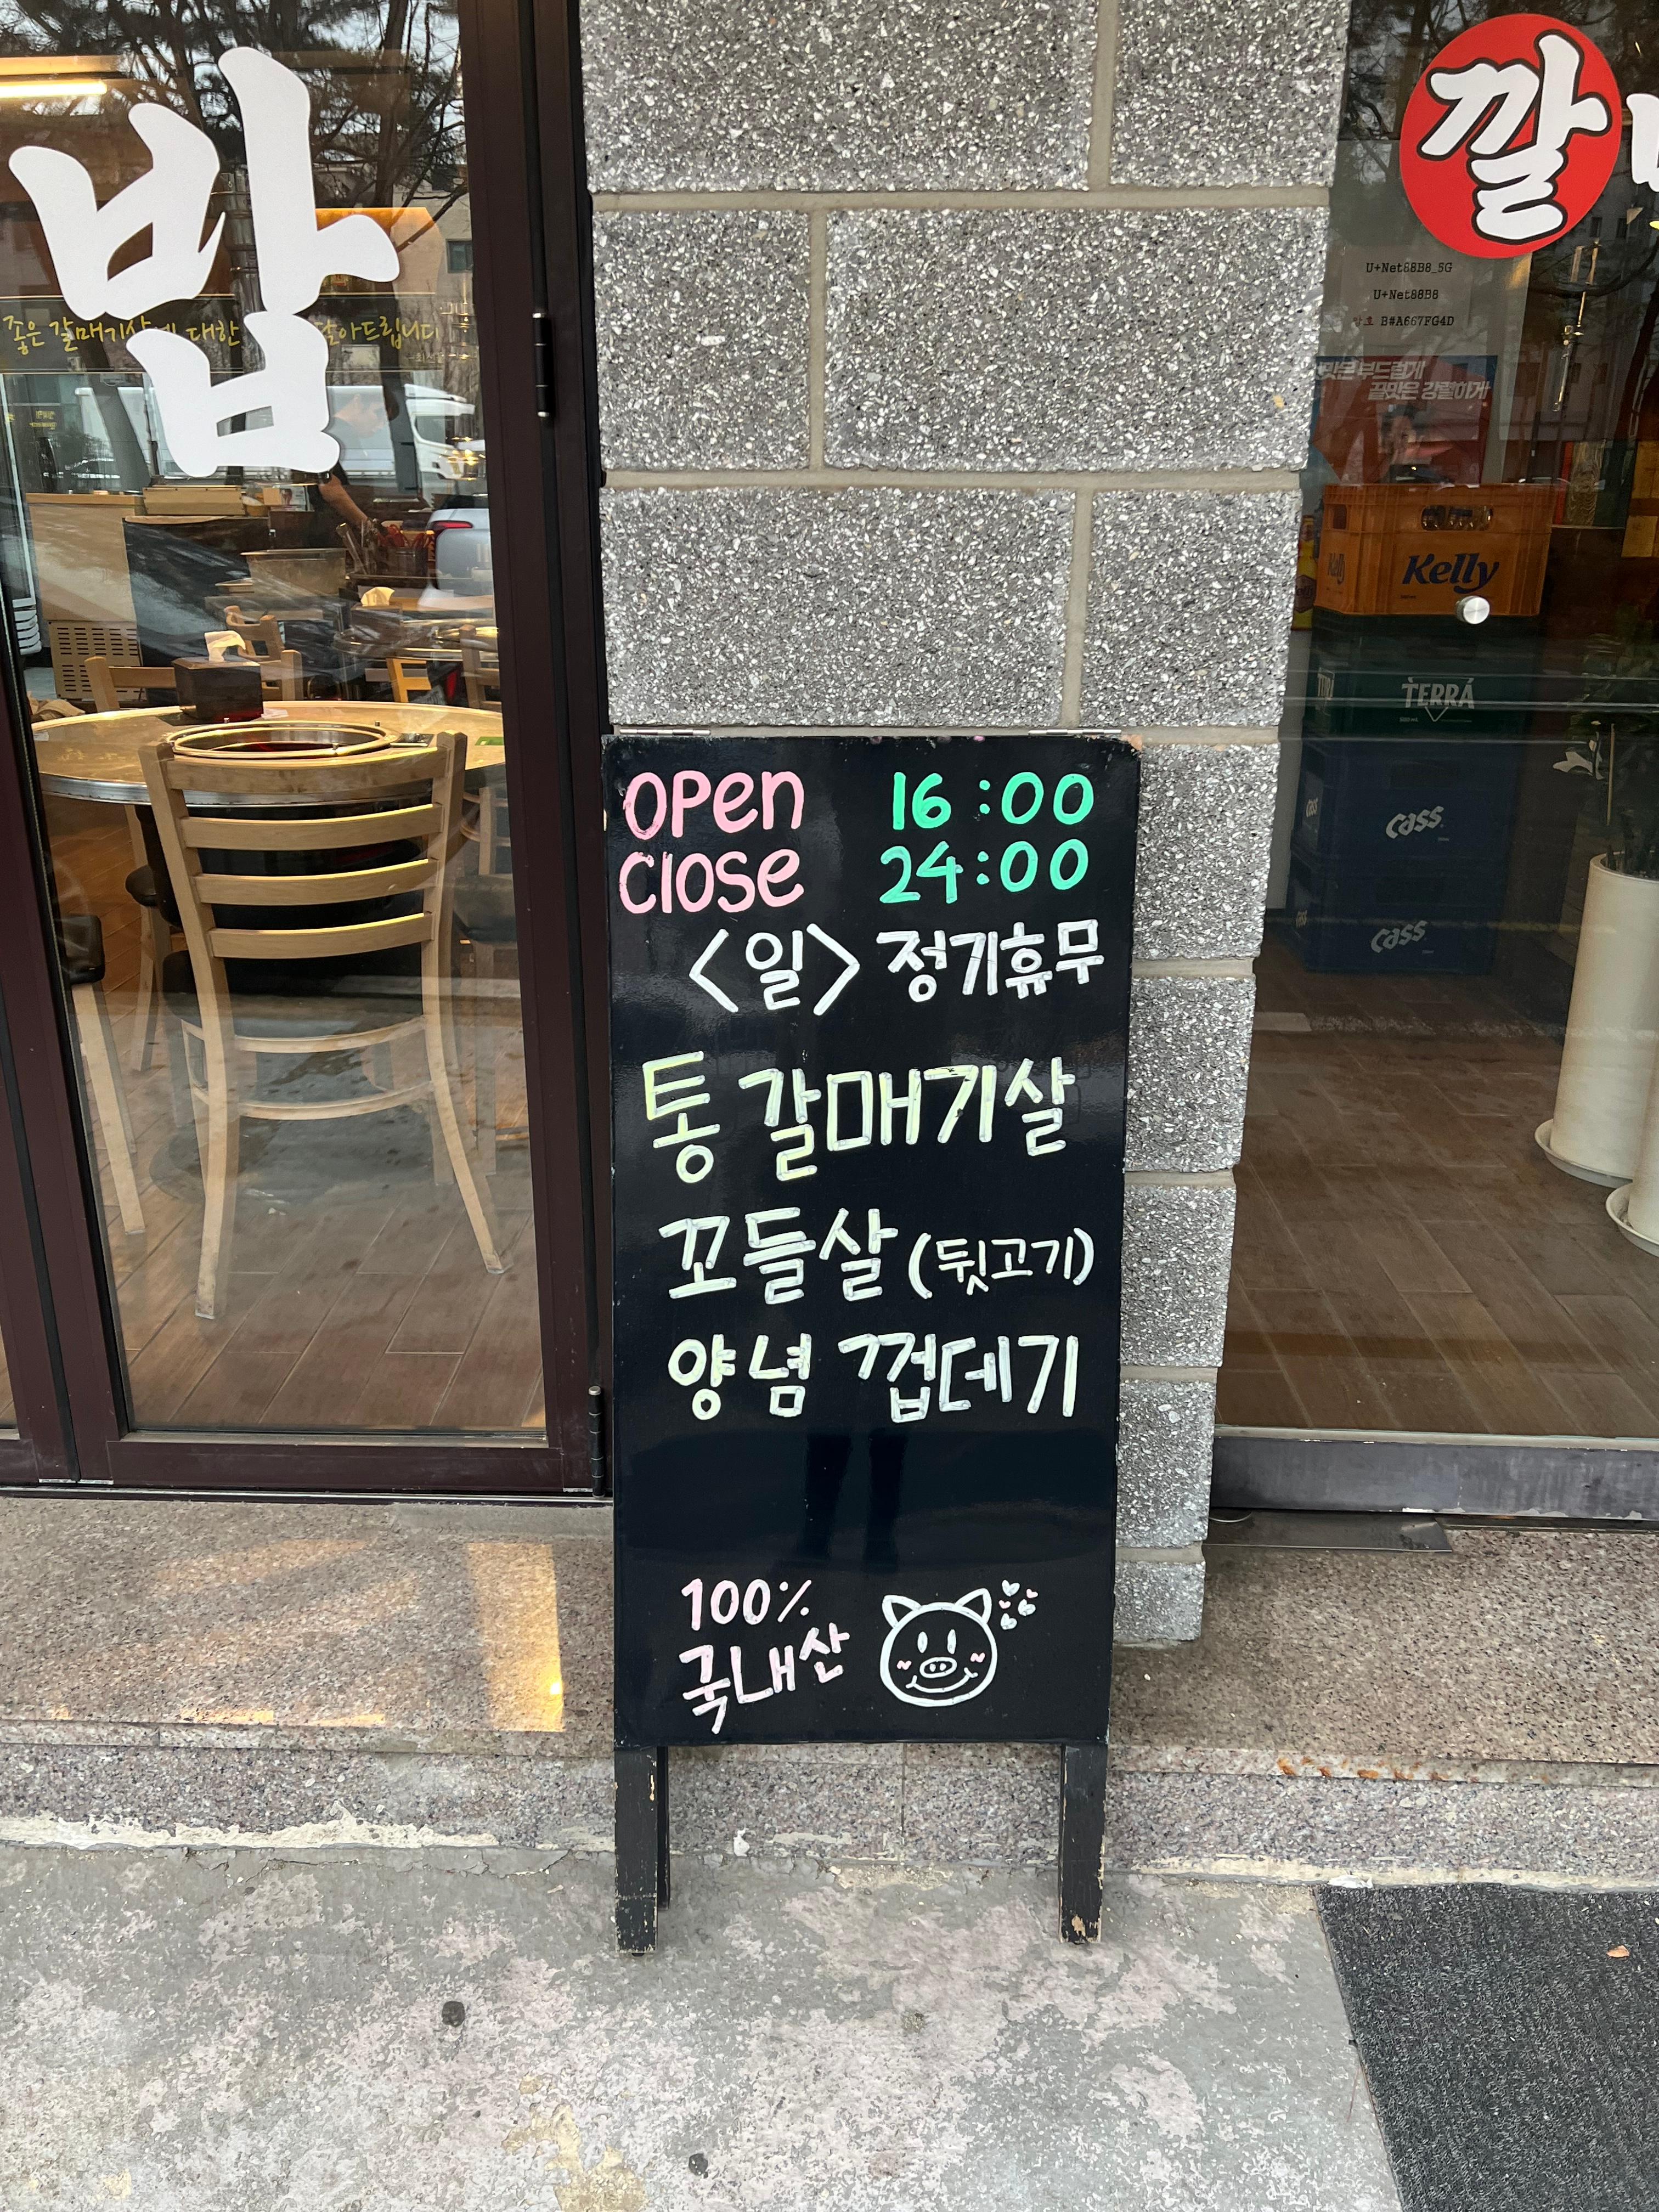 밥
좋은 갈매기살에 대한
담아드립니다
깔
U+Net88B8_5G
U+Net88B8
B#A667FG4D
맛은 부드럽게
끝맛은 강렬하게
Kelly
Kelly
TERRA
Cass
Cass
OPen 16:00
Close 24:00
<일> 정기휴무
통 갈매기살
꼬들살 (뒷고기)
양념 껍데기
100%
국내산